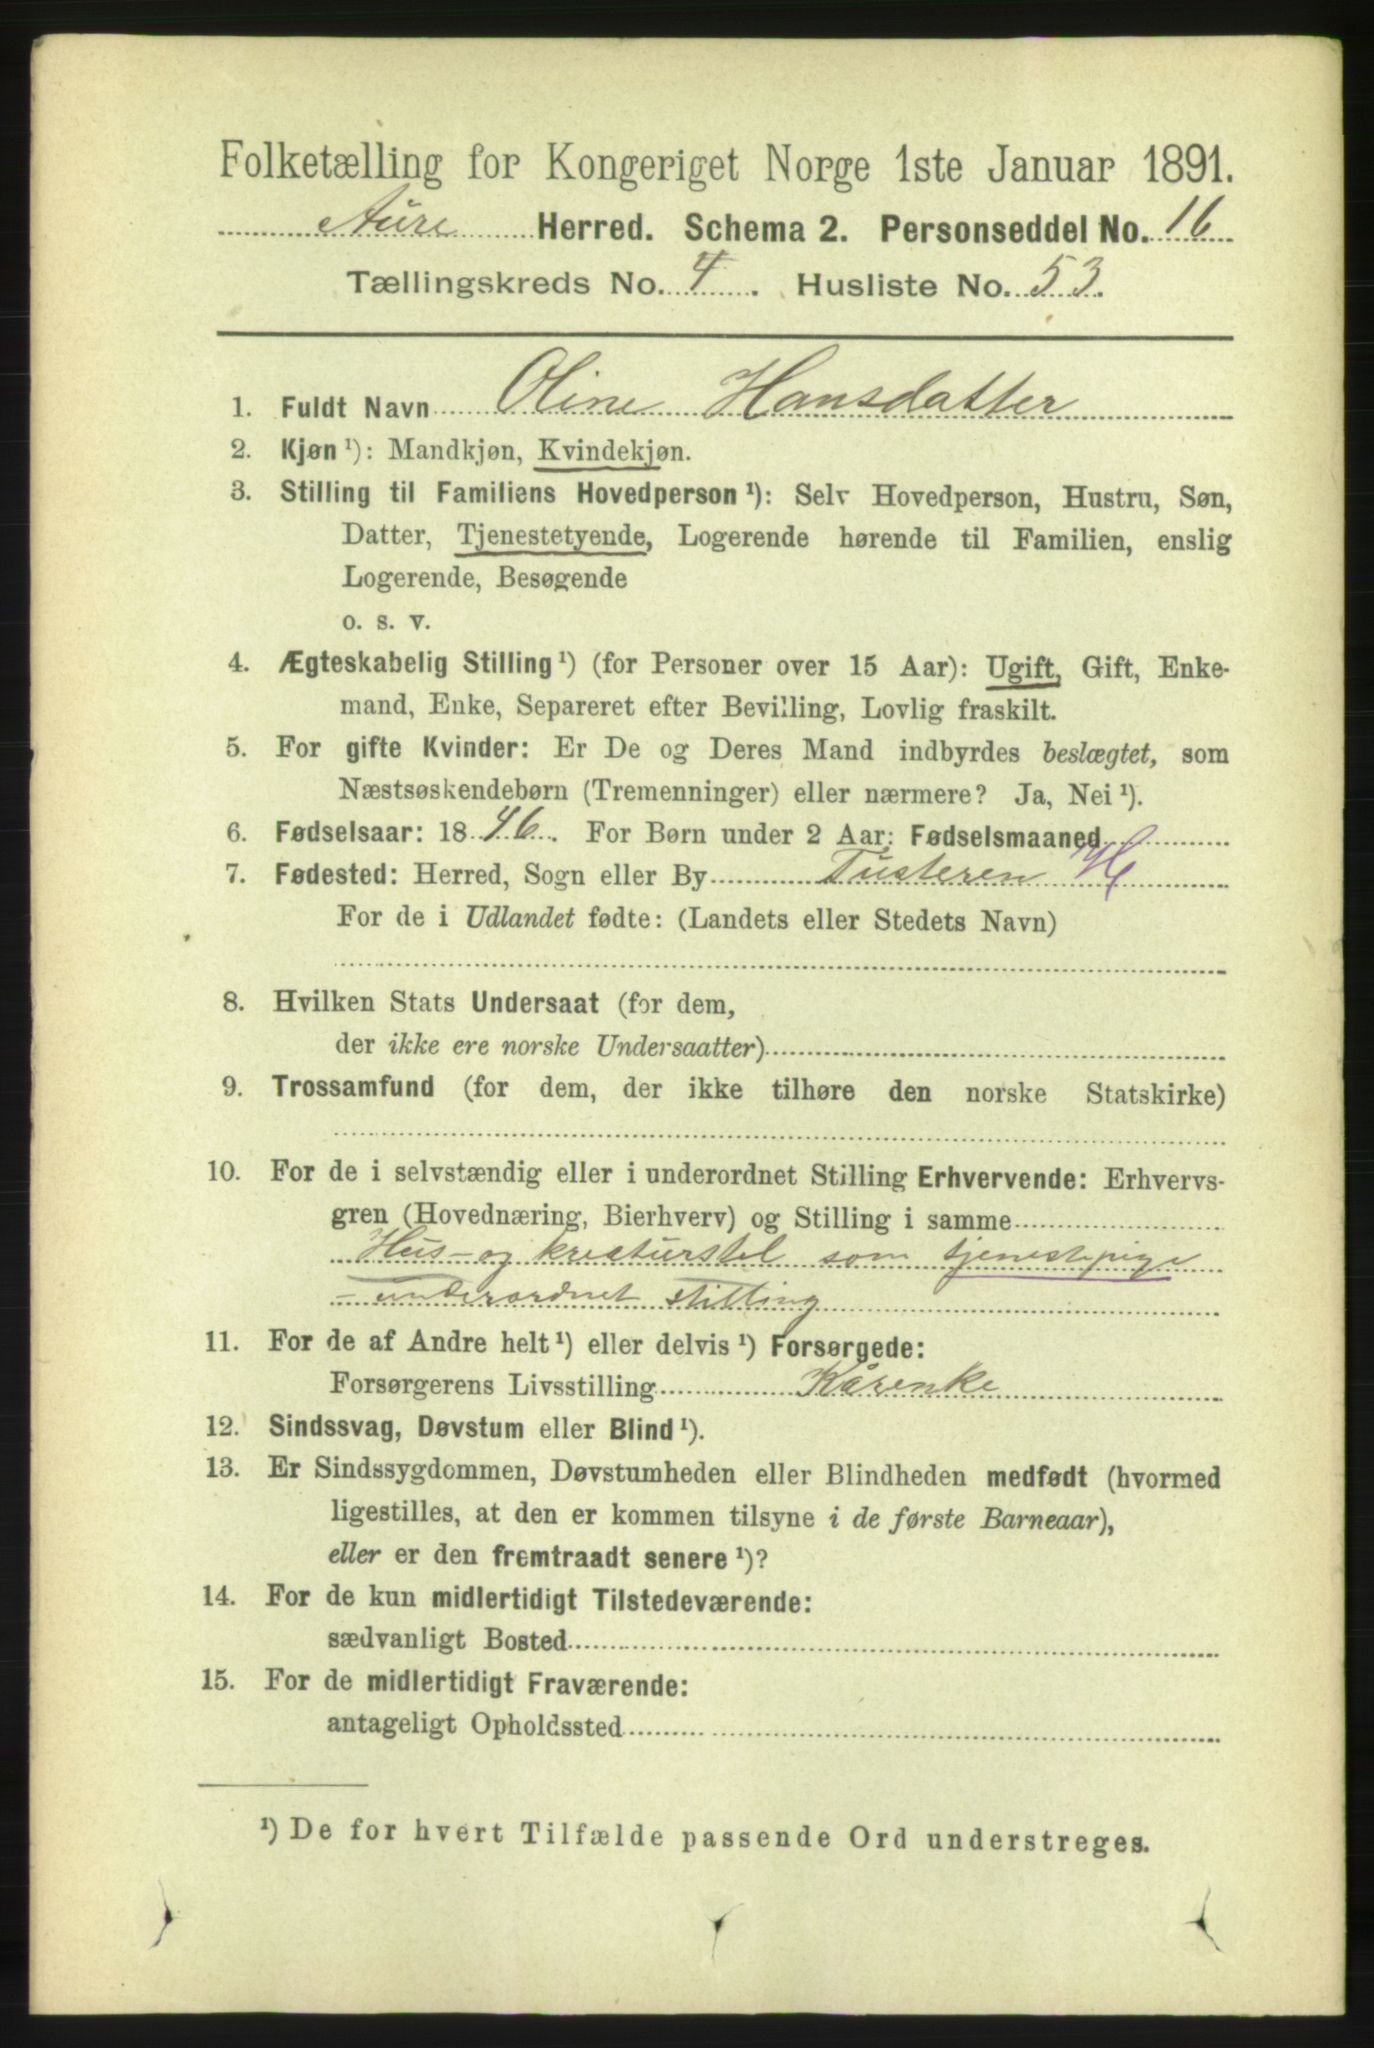 Folketælling for Kongeriget Norge 1ste Januar 1891.
Aure Herred. Schema 2. Personseddel No. 16
Tællingskreds No. 4. Husliste No. 53.
1. Fuldt Navn Oline Hansdatter
2. Kjøn ¹): Mandkjøn, Kvindekjøn.
3. Stilling til Familiens Hovedperson ¹): Selv Hovedperson, Hustru, Søn,
Datter, Tjenestetyende, Logerende hørende til Familien, enslig
Logerende, Besøgende
o. s. v.
4. Ægteskabelig Stilling ¹) (for Personer over 15 Aar): Ugift, Gift, Enke-
mand, Enke, Separeret efter Bevilling, Lovlig fraskilt.
5. For gifte Kvinder: Er De og Deres Mand indbyrdes beslægtet, som
Næstsøskendebørn (Tremenninger) eller nærmere? Ja, Nei ¹).
6. Fødselsaar: 1846. For Børn under 2 Aar: Fødselsmaaned
7. Fødested: Herred, Sogn eller By Tusteren H
For de i Udlandet fødte: (Landets eller Stedets Navn)
8. Hvilken Stats Undersaat (for dem,
der ikke ere norske Undersaatter)
9. Trossamfund (for dem, der ikke tilhøre den norske Statskirke)
10. For de i selvstændig eller i underordnet Stilling Erhvervende: Erhvervs-
gren (Hovednæring, Bierhverv) og Stilling i samme
Hus- og kreaturstel som tjenestepige
- underordnet stilling
11. For de af Andre helt ¹) eller delvis ¹) Forsørgede:
Forsørgerens Livsstilling Kårenke
12. Sindssvag, Døvstum eller Blind ¹).
13. Er Sindssygdommen, Døvstumheden eller Blindheden medfødt (hvormed
ligestilles, at den er kommen tilsyne i de første Barneaar),
eller er den fremtraadt senere ¹)?
14. For de kun midlertidigt Tilstedeværende:
sædvanligt Bosted
15. For de midlertidigt Fraværende:
antageligt Opholdssted
¹) De for hvert Tilfælde passende Ord understreges.